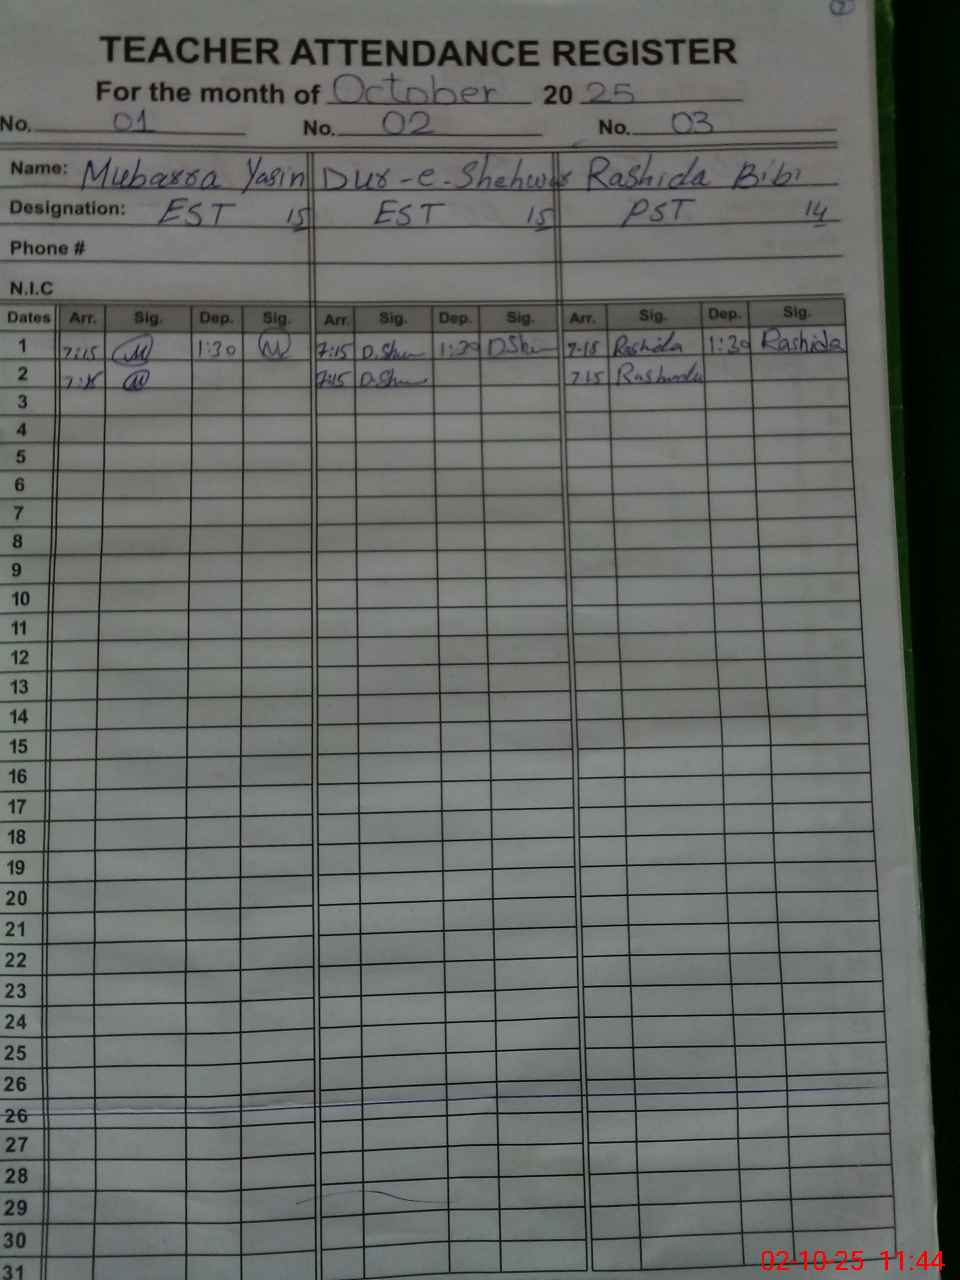 2
TEACHER ATTENDANCE REGISTER
For the month of October 20 25
No. 01 No. 02 No. 03
Name: Mubarra Yasin Dur-e-Shehwar Rashida Bibi
Designation: EST 15 EST 15 PST 14
Phone #
N.I.C
Dates Arr. Sig. Dep. Sig. Arr. Sig. Dep. Sig. Arr. Sig. Dep. Sig.
1 7:15 M 1:30 M 7:15 D.Sh 1:30 D.Sh 7:15 Rashida 1:30 Rashida
2 7:15 M 7:15 D.Sh 7:15 Rashida
3
4
5
6
7
8
9
10
11
12
13
14
15
16
17
18
19
20
21
22
23
24
25
26
26
27
28
29
30
31
02-10-25 11:44